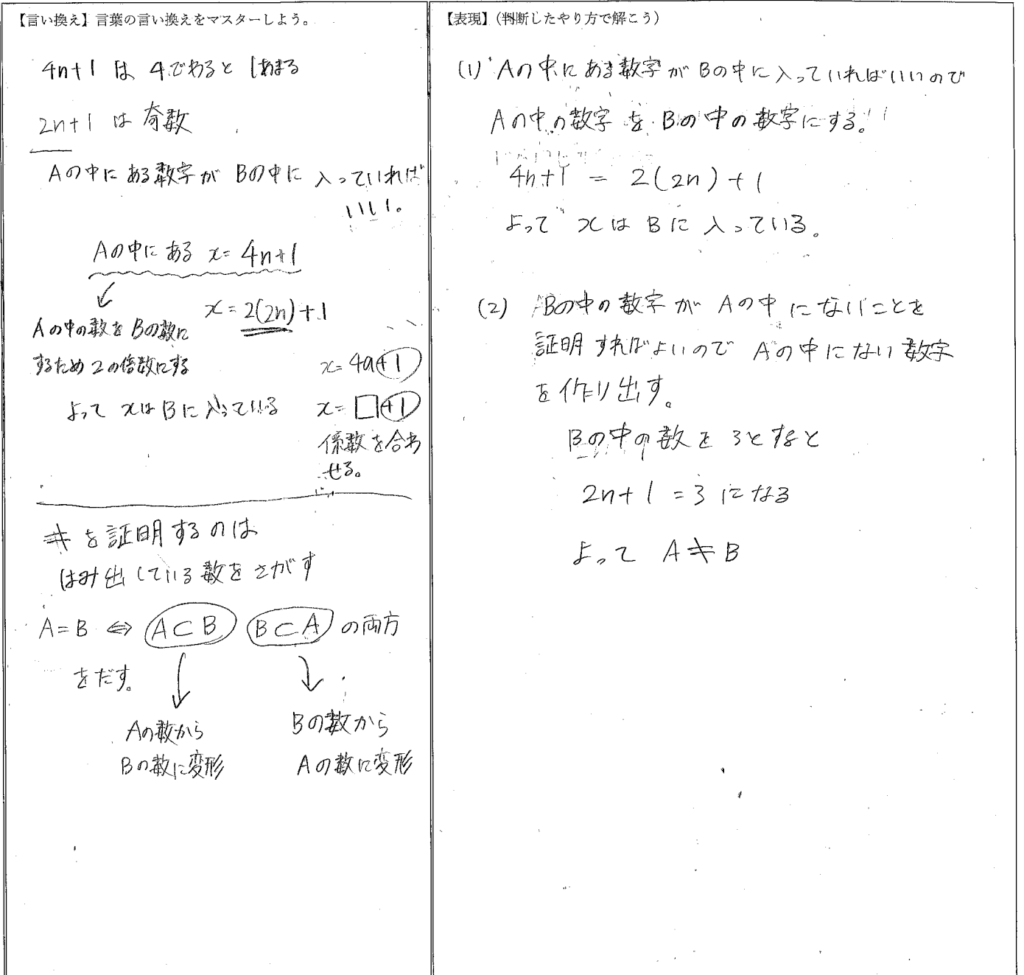 【言い換え】言葉の言い換えをマスターしよう。
4n+1 は 4でわると 1あまる
2n+1 は 奇数
Aの中に ある 数字が Bの中に 入っていれば
いい。
Aの中に ある x= 4n+1
x = 2(2n) + 1
Aの中の数を Bの数に
するため 2の倍数にする
x= 4n+1
よって xは Bに 入っている
x= □+1
係数を合わ
せる。
≠ を 証明するのは
はみ出している 数を さがす
A=B ⇔ A⊂B B⊂A の両方
をだす。
Aの数から
Bの数に変形
Bの数から
Aの数に変形
【表現】(判断したやり方で解こう)
(1) Aの中にある数字が Bの中に入っていればいいので
Aの中の数字を Bの中の数字にする。
4n+1 = 2(2n)+1
よって xは Bに 入っている。
(2) Bの中の数字が Aの中にないことを
証明すればよいので Aの中にない 数字
を作り出す。
Bの中の数を 3とすると
2n+1 = 3 になる
よって A≠B